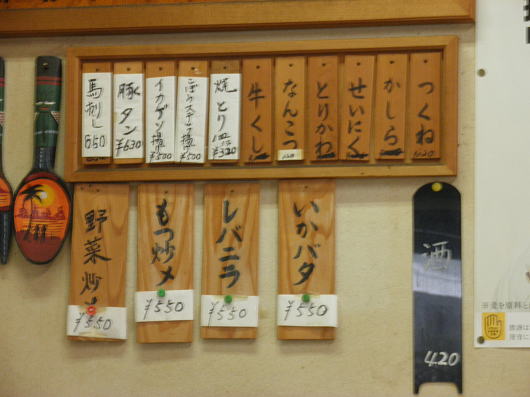 つくね
かしら
せいにく
とりかわ
なんこつ
牛くし
焼とり
¥320
ごぼうスティック揚
¥500
イカゲソ揚
¥500
豚タン
¥630
馬刺し
550
いかバタ
¥550
レバニラ
¥550
もつ炒メ
¥550
野菜炒メ
¥550
酒
420